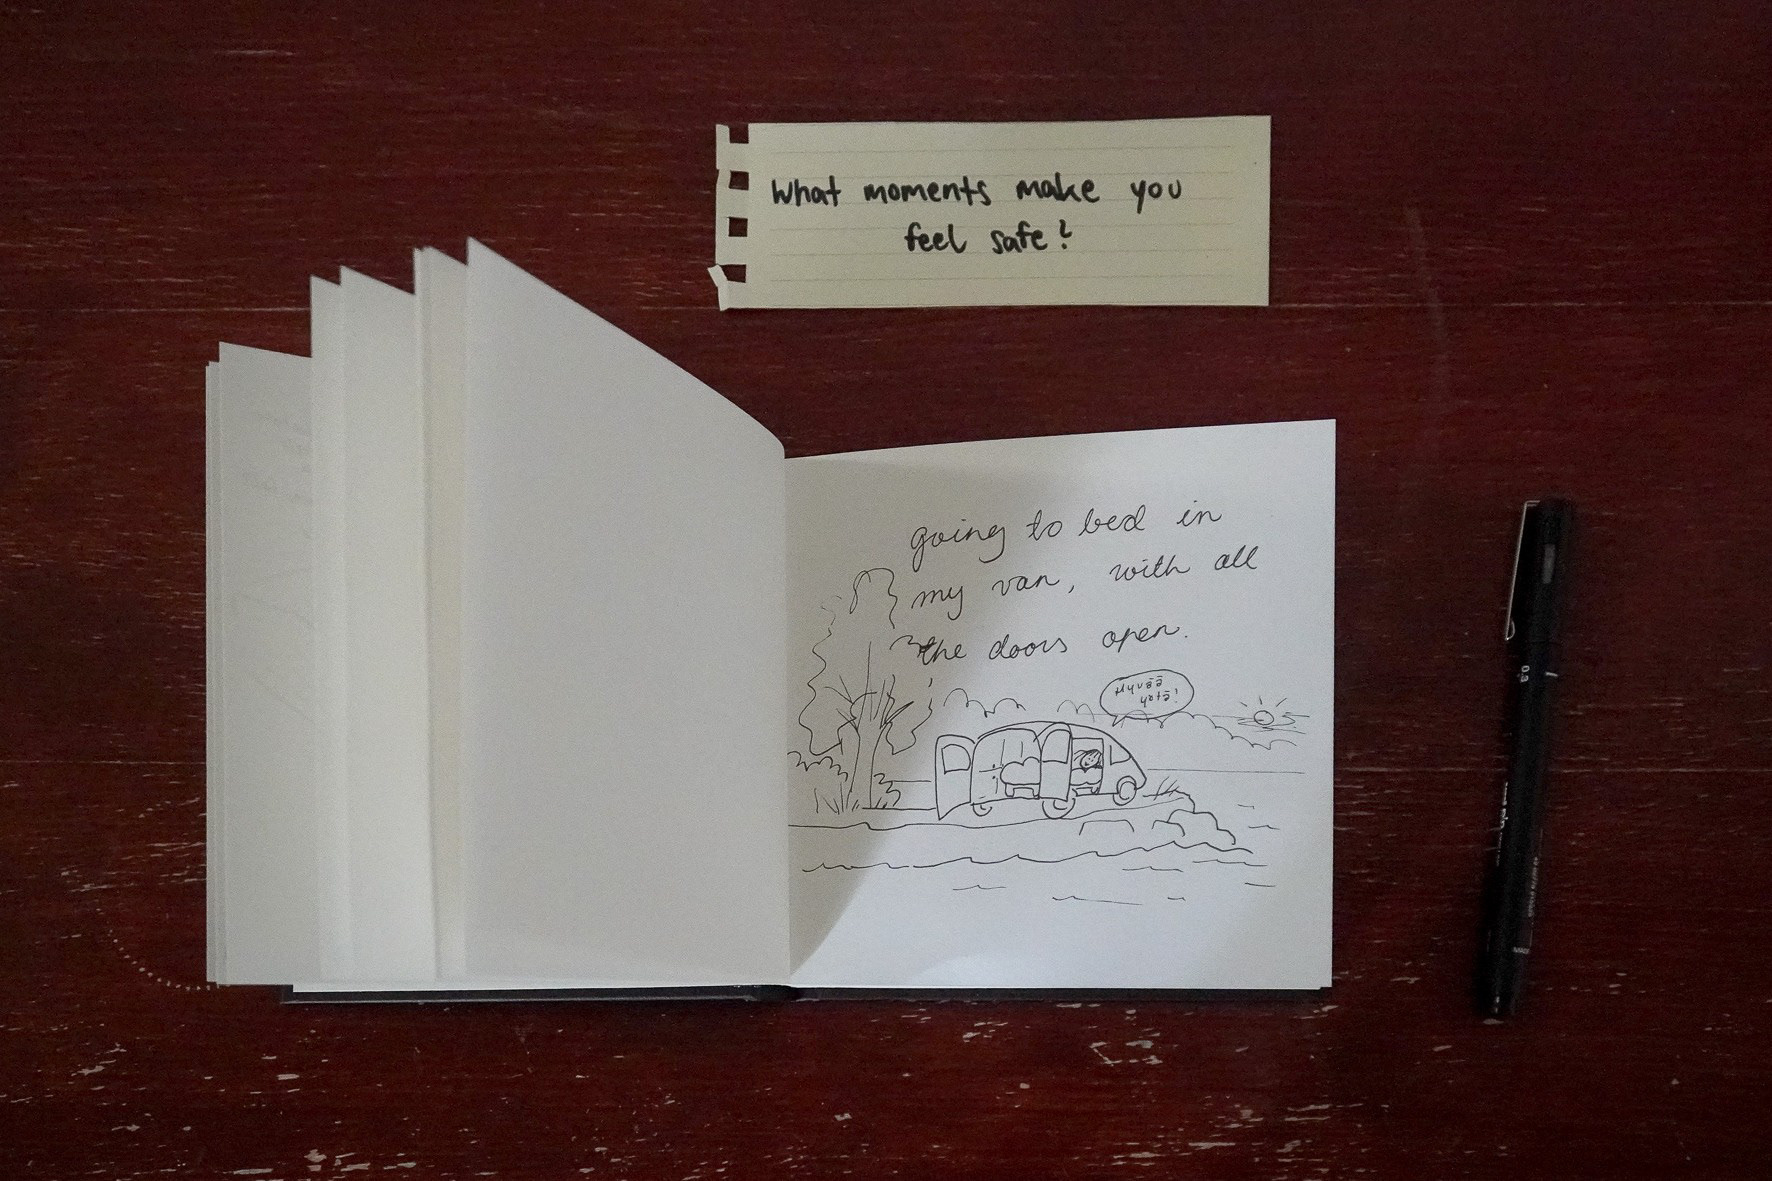 What moments make you
feel safe?
going to bed in
my van, with all
the doors open.
Hyvää
yötä!
0.3